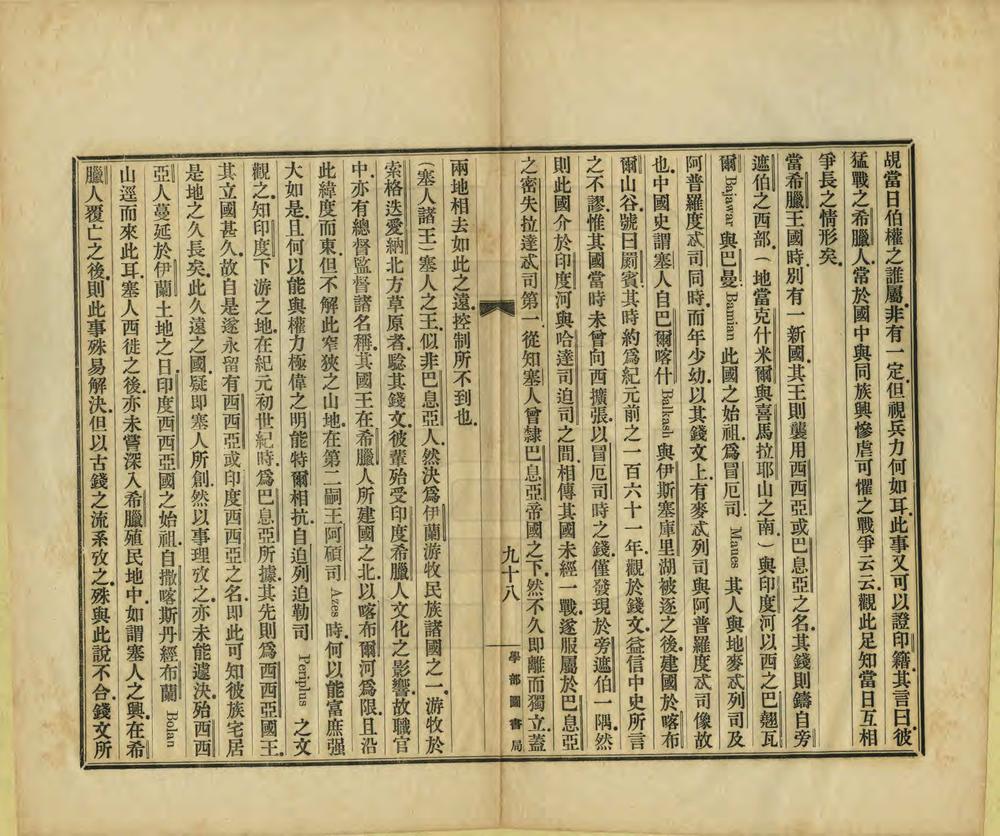 覘當日伯權之誰屬非有一定但視兵力何如耳此事又可以證印籍其言曰彼
猛戰之希臘人常於國中與同族興慘虐可懼之戰爭云云觀此足知當日互相
爭長之情形矣
當希臘王國時別有一新國其王則襲用西西亞或巴息亞之名其錢則鑄自旁
遮伯之西部（地當克什米爾與喜馬拉耶山之南）與印度河以西之巴翹瓦
爾 Bajawar 與巴曼 Bamian 此國之始祖爲冒厄司 Maues 其人與地麥忒列司及
阿普羅度忒司同時而年少幼以其錢文上有麥忒列司與阿普羅度忒司像故
也中國史謂塞人自巴爾喀什 Balkash 與伊斯塞庫里湖被逐之後建國於喀布
爾山谷號曰罽賓其時約爲紀元前之一百六十一年觀於錢文益信中史所言
之不謬惟其國當時未曾向西擴張以冒厄司時之錢僅發現於旁遮伯一隅然
則此國介於印度河與哈達司迫司之間相傳其國未經一戰遂服屬於巴息亞
之密失拉達忒司第一從知塞人曾隸巴息亞帝國之下然不久即離而獨立蓋
九十八
學部圖書局
兩地相去如此之遠控制所不到也
（塞人諸王）塞人之王似非巴息亞人然決爲伊蘭游牧民族諸國之一游牧於
索格迭愛納北方草原者聆其錢文彼輩殆受印度希臘人文化之影響故職官
中亦有總督監督諸名稱其國王在希臘人所建國之北以喀布爾河爲限且沿
此緯度而東但不解此窄狹之山地在第二嗣王阿碩司 Azes 時何以能富庶强
大如是且何以能與權力極偉之明能特爾相抗自迫列迫勒司 Periplus 之文
觀之知印度下游之地在紀元初世紀時爲巴息亞所據其先則爲西西亞國王
其立國甚久故自是遂永留有西西亞或印度西西亞之名即此可知彼族宅居
是地之久長矣此久遠之國疑即塞人所創然以事理攷之亦未能遽決殆西西
亞人蔓延於伊蘭土地之日印度西西亞國之始祖自撒喀斯丹經布蘭 Bolan
山逕而來此耳塞人西徙之後亦未嘗深入希臘殖民地中如謂塞人之興在希
臘人覆亡之後則此事殊易解決但以古錢之流系攷之殊與此說不合錢文所